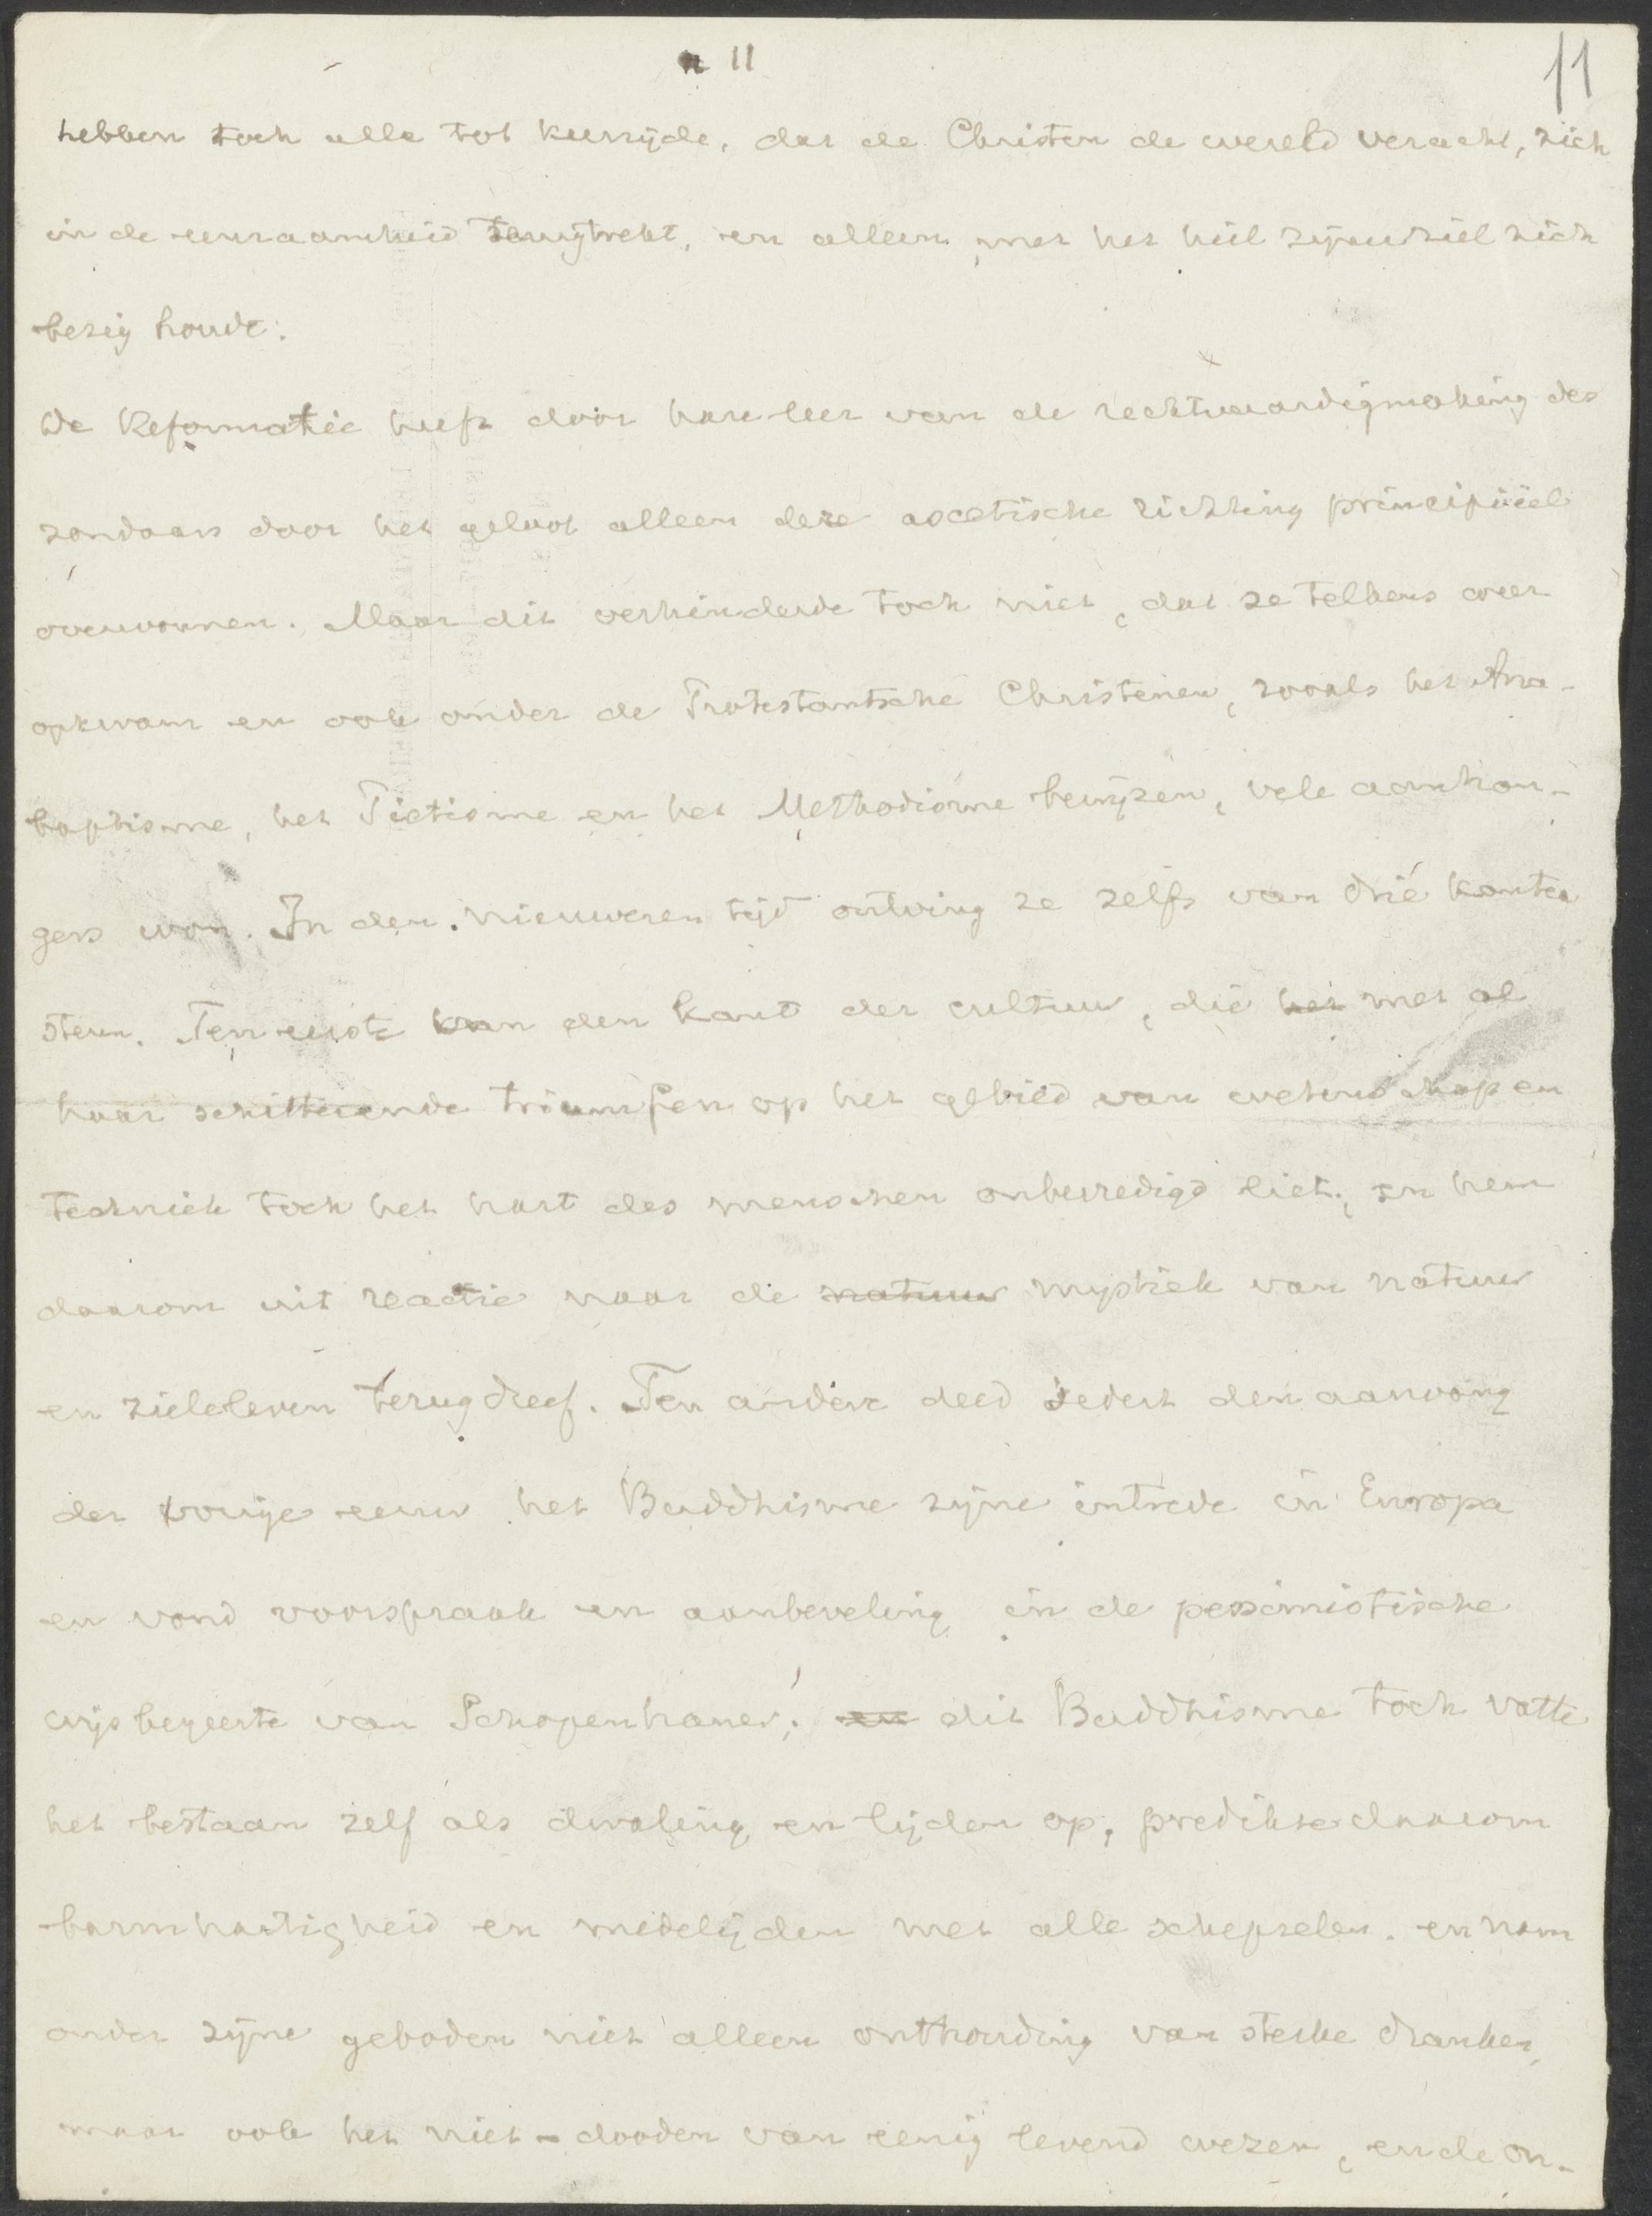 11
11
hebben toch alle tot keerzijde, dat de Christen de wereld veracht, zich
in de eenzaamheid terugtrekt, en alleen met het heil zijner ziel zich
bezig houdt.
De Reformatie heeft door hare leer van de rechtvaardigmaking des
zondaars door het geloof alleen deze ascetische richting principiëel
overwonnen. Maar dit verhinderde toch niet, dat ze telkens weer
opkwam en ook onder de Protestantsche Christenen, zooals het Ana-
baptisme, het Pietisme en het Methodisme bewijzen, vele aanhan-
gers won. In den nieuweren tijd ontving ze zelfs van drie kanten
steun. Ten eerste van den kant der cultuur, die het met al
haar schitterende triumfen op het gebied van wetenschap en
techniek toch het hart des menschen onbevredigd liet, en hem
daarom uit reactie naar de natuur mystiek van natuur
en zieleleven terugdreef. Ten andere deed sedert den aanvang
der vorige eeuw het Buddhisme zijne intrede in Europa
en vond voorspraak en aanbeveling in de pessimistische
wijsbegeerte van Schopenhauer; en dit Buddhisme toch vatte
het bestaan zelf als dwaling en lijden op, predikte daarom
barmhartigheid en medelijden met alle schepselen en nam
onder zijne geboden niet alleen onthouding van sterke dranken,
maar ook het niet-dooden van eenig levend wezen, en de on-